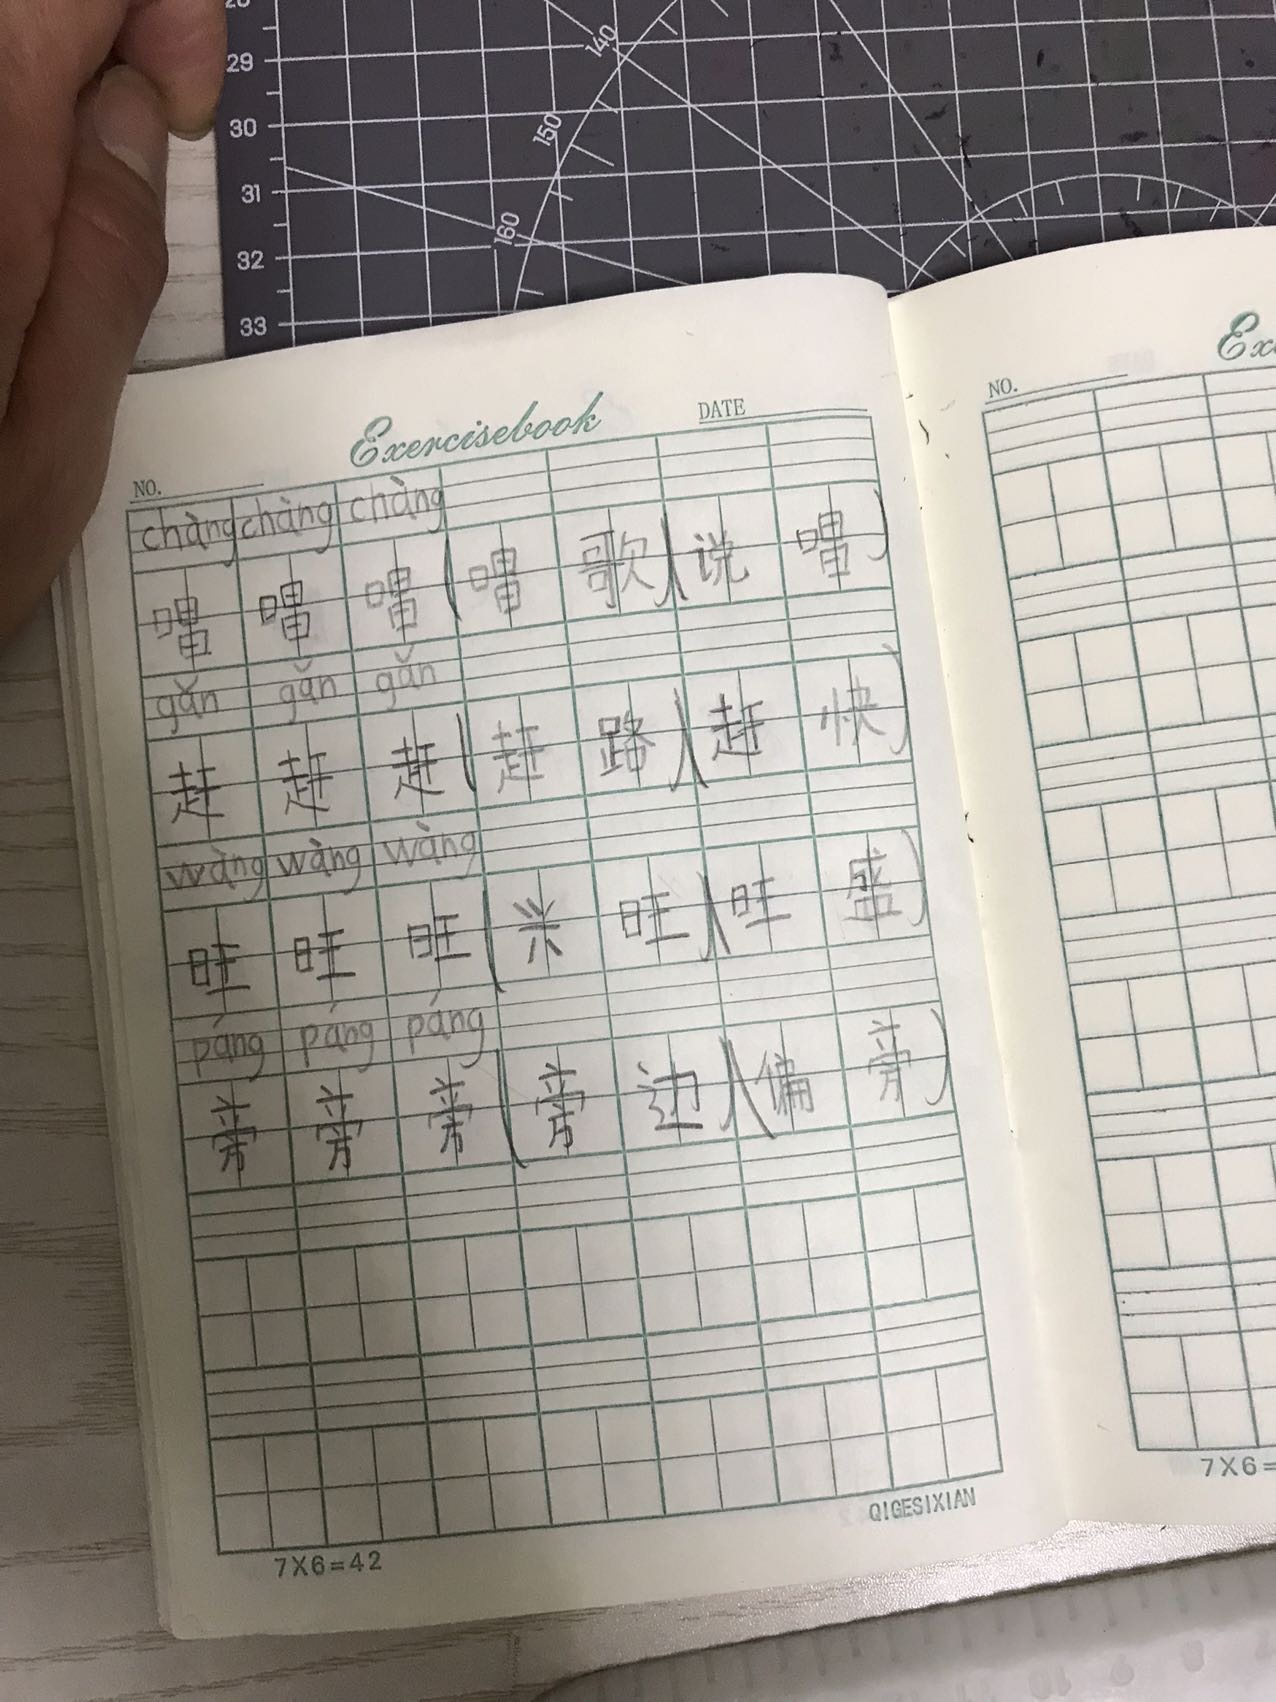 28
29
30
31
32
33
140
150
160
Exercisebook
NO.
DATE
chàng chàng chàng
唱 唱 唱 (唱 歌)(说 唱)
gǎn gǎn gǎn
赶 赶 赶 (赶 路)(赶 快)
wàng wàng wàng
旺 旺 旺 (兴 旺)(旺 盛)
páng páng páng
旁 旁 旁 (旁 边)(偏 旁)
7X6=42
QIGESIXIAN
NO.
Ex
7X6=